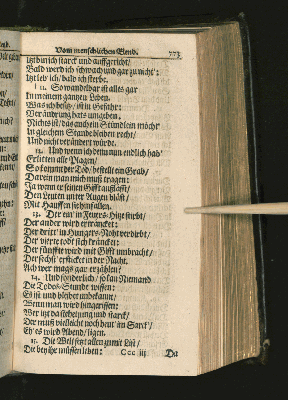 Vom menschlichen Elend. 773
itzt bin ich starck und auffgericht/
Bald werd ich schwach und gar zu nicht:
itzt leb' ich/ bald ich sterbe.
11. So wandelbar ist alles gar
In meinem gantzen Leben.
Was ich besitz/ ist in Gefahr:
Verändrung hats umgeben.
Nichts ist/ das auch ein Stündlein möcht'
In gleichem Stande bleiben recht/
Und nicht verändert würde.
12. Und wenn ich denn nun endlich hab'
Erlitten alle Plagen/
So kommt der Tod/ bestellt ein Grab/
Darein man mich muß tragen:
Ja wann er seinen Gifft ausläst/
Den Leuten unter Augen bläst/
Mit Hauffen sie hinfallen.
13. Der ein' in Feuers-Hitz stirbt/
Der ander wird erträncket:
Der dritt' in Hungers-Noht verdirbt/
Der vierte todt sich kräncket:
Der fünffte wird mit Gifft umbracht/
Der sechst' ersticket in der Nacht.
Ach wer mags gar erzählen?
14. Und sonderlich/ so kan Niemand
Die Todes-Stunde wissen:
Es ist und bleibet unbekannt/
Wenn man wird hingerissen:
Wer itzt da steht jung und starck/
Der muß vielleicht noch heut' im Sarck/
Eh' es wird Abend/ ligen.
15. Die Welt setzt allen zu mit List/
Die bey ihr müssen leben:
Ccc iij Da